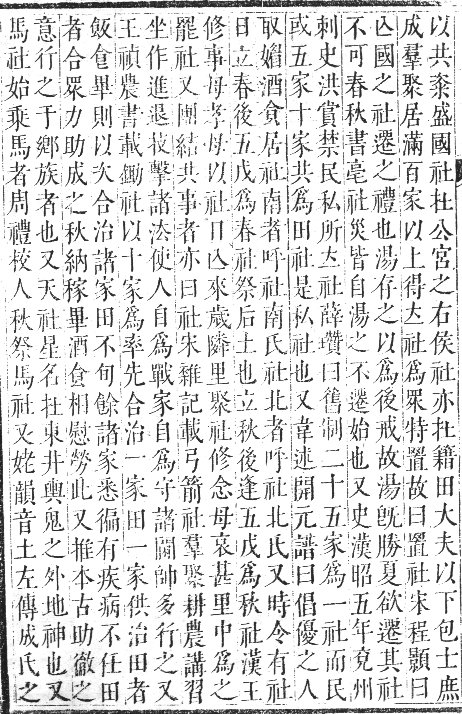 以共粢盛國社在公宮之右侯社亦在籍田大夫以下包士庶
成羣聚居滿百家以上得立社爲眾特置故曰置社宋程顥曰
亾國之社遷之禮也湯存之以爲後戒故湯旣勝夏欲遷其社
不可春秋書亳社災皆自湯之不遷始也又史漢昭五年兗州
刺史洪賞禁民私所立社薛瓚曰舊制二十五家爲一社而民
或五家十家共爲田社是私社也又韋述開元譜曰倡優之人
取媚酒食居社南者呼社南氏社北者呼社北氏又時令有社
日立春後五戊爲春社祭后土也立秋後逢五戊爲秋社漢王
修事母孝母以社日亾來歲隣里聚社修念母哀甚里中爲之
罷社又團結共事者亦曰社宋雜記載弓箭社羣聚耕農講習
坐作進退技擊諸法使人自爲戰家自爲守諸閫帥多行之又
王禎農書載鋤社以十家爲率先合治一家田一家供治田者
飯食畢則以次合治諸家田不旬餘諸家悉徧有疾病不任田
者合眾力助成之秋納稼畢酒食相慰勞此又推本古助徹之
意行之于鄉族者也又天社星名在東井輿鬼之外地神也又
馬社始乘馬者周禮校人秋祭馬社又姥韻音土左傳成氏之